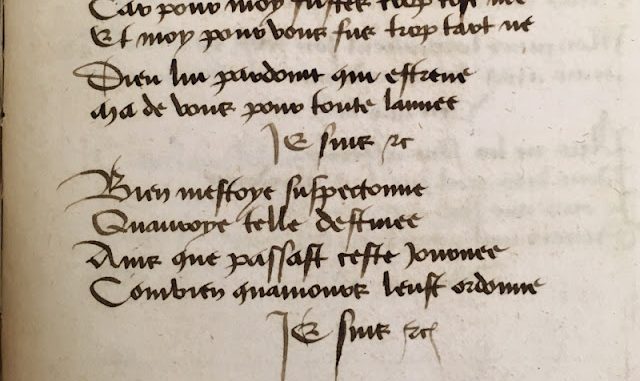 Car pour moy fustes trop tost nee
Et moy pour vous fus trop tart ne
Dieu lui pardoint qui estrene
Ma de vous pour toute lannee
Je suis &c
Bien mestoye suspeconne
Quauroye telle destinee
Ains que passast ceste journee
Combien quamours leust ordonne
Je suis &c